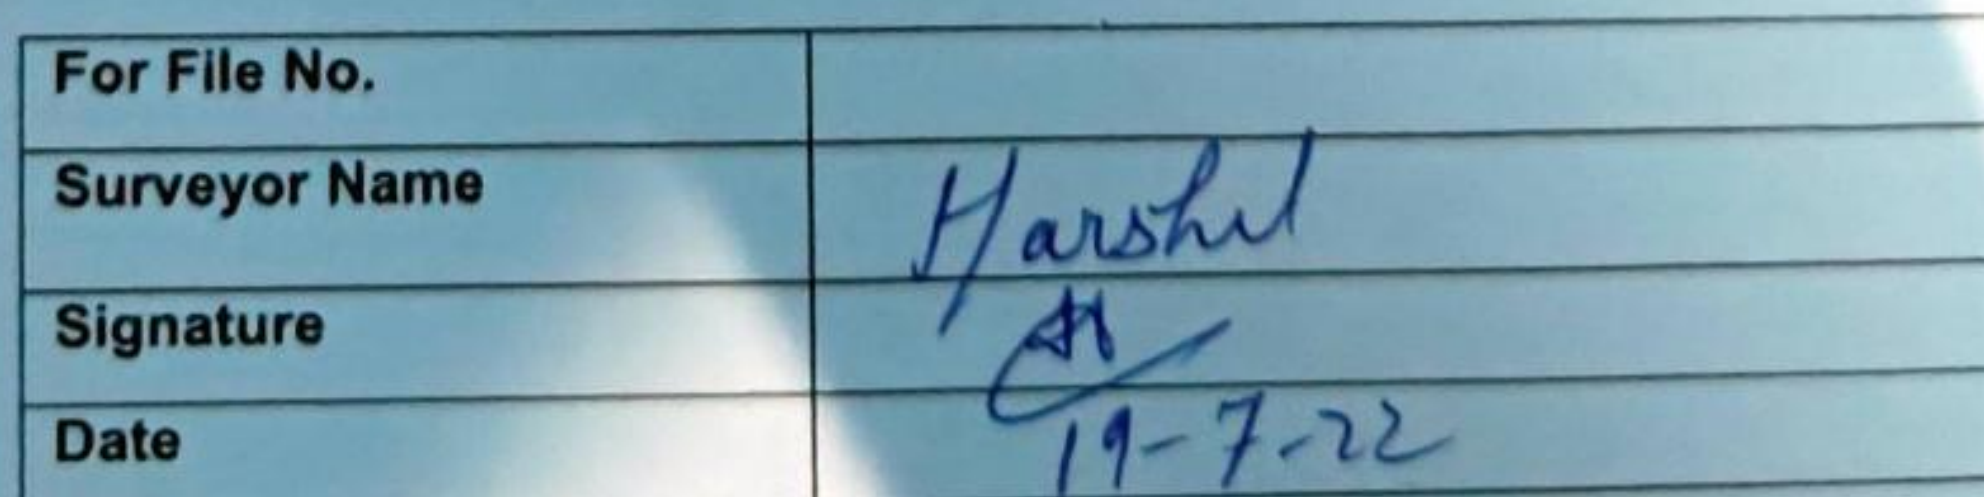 For File No.
Surveyor Name Harshil
Signature
Date 19-7-22